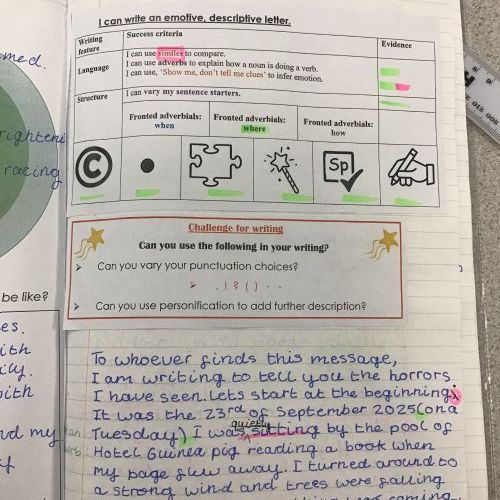 I can write an emotive, descriptive letter.
Writing feature
Success criteria
Evidence
Language
I can use similes to compare.
I can use adverbs to explain how a noun is doing a verb.
I can use, 'Show me, don't tell me clues' to infer emotion.
Structure
I can vary my sentence starters.
Fronted adverbials: when
Fronted adverbials: where
Fronted adverbials: how
C
Sp
Challenge for writing
Can you use the following in your writing?
Can you vary your punctuation choices?
. ! ? ( ) - -
Can you use personification to add further description?
med.
righteni
racing
be like?
es.
ith
ily.
with
nd my
To whoever finds this message,
I am writing to tell you the horrors
I have seen. Lets start at the beginning:
It was the 23rd of September 2025 (on a
Tuesday) I was quietly sitting by the pool of
Hotel Guinea pig reading a book when
my page flew away. I turned around to
a strong wind and trees were falling
coming